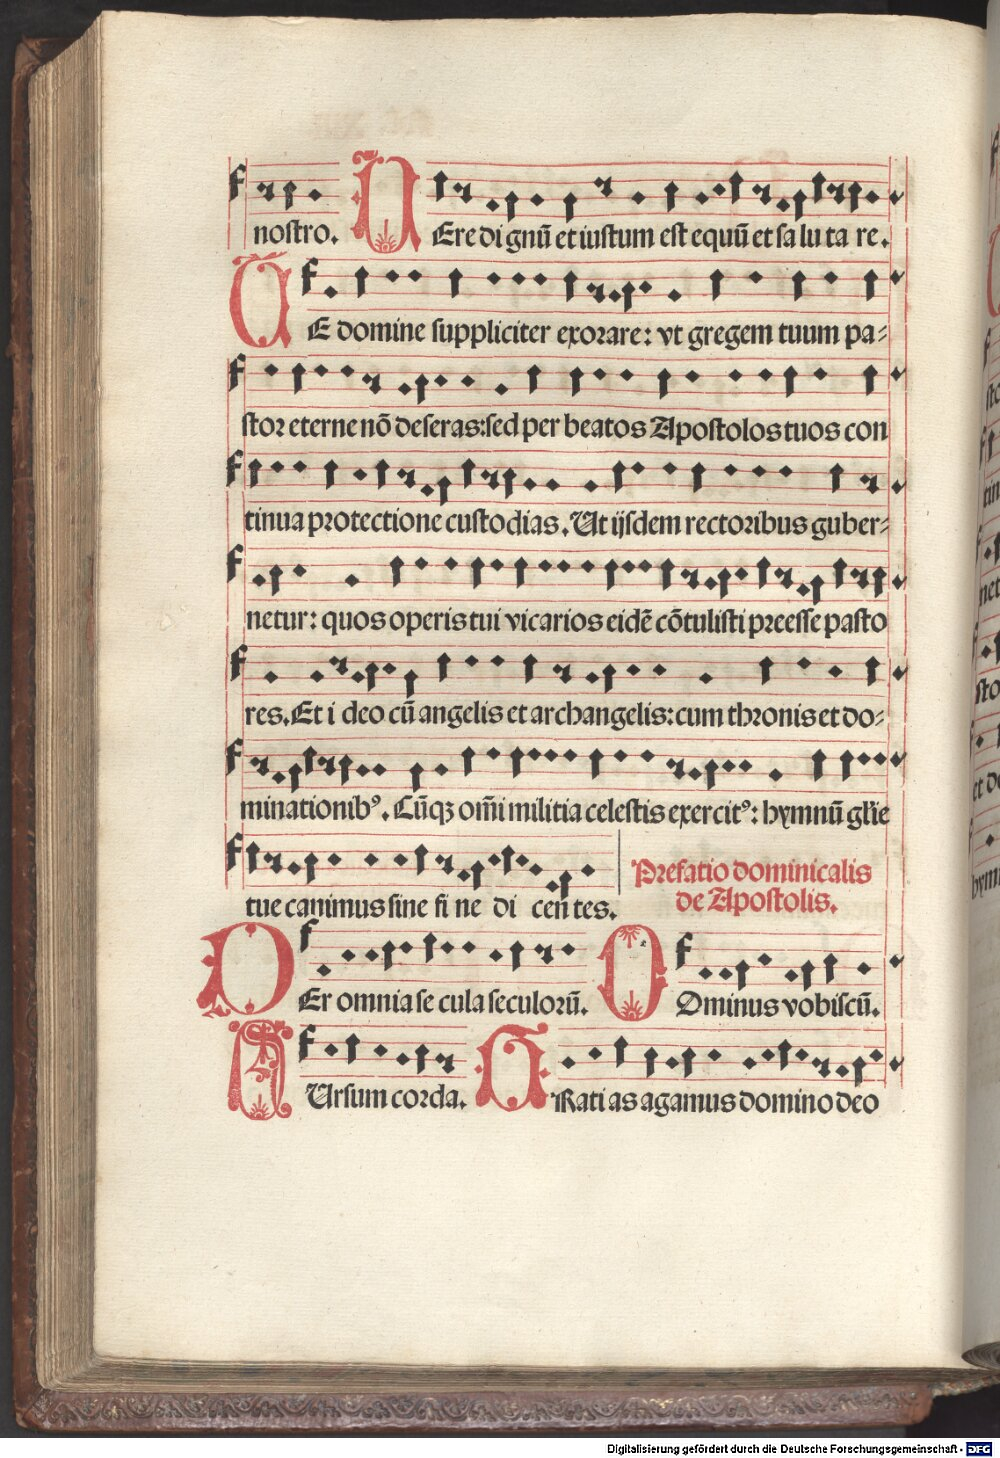 nostro. VEre di gnū et iustum est equū et sa lu ta re.
TE domine suppliciter exorare: vt gregem tuum pa-
stor eterne nō deseras: sed per beatos Apostolos tuos con
tinua protectione custodias. Ut ijsdem rectoribus guber-
netur: quos operis tui vicarios eidē cōtulisti preesse pasto
res. Et i deo cū angelis et archangelis: cum thronis et do-
minationibꝰ. Cūqz om̄i militia celestis exercitꝰ: hymnū gl̄ie
tue canimus sine fi ne di cen tes.
Prefatio dominicalis
de Apostolis.
PEr omnia se cula seculorū. DOminus vobiscū.
SUrsum corda. GRati as agamus domino deo
Digitalisierung gefördert durch die Deutsche Forschungsgemeinschaft - DFG